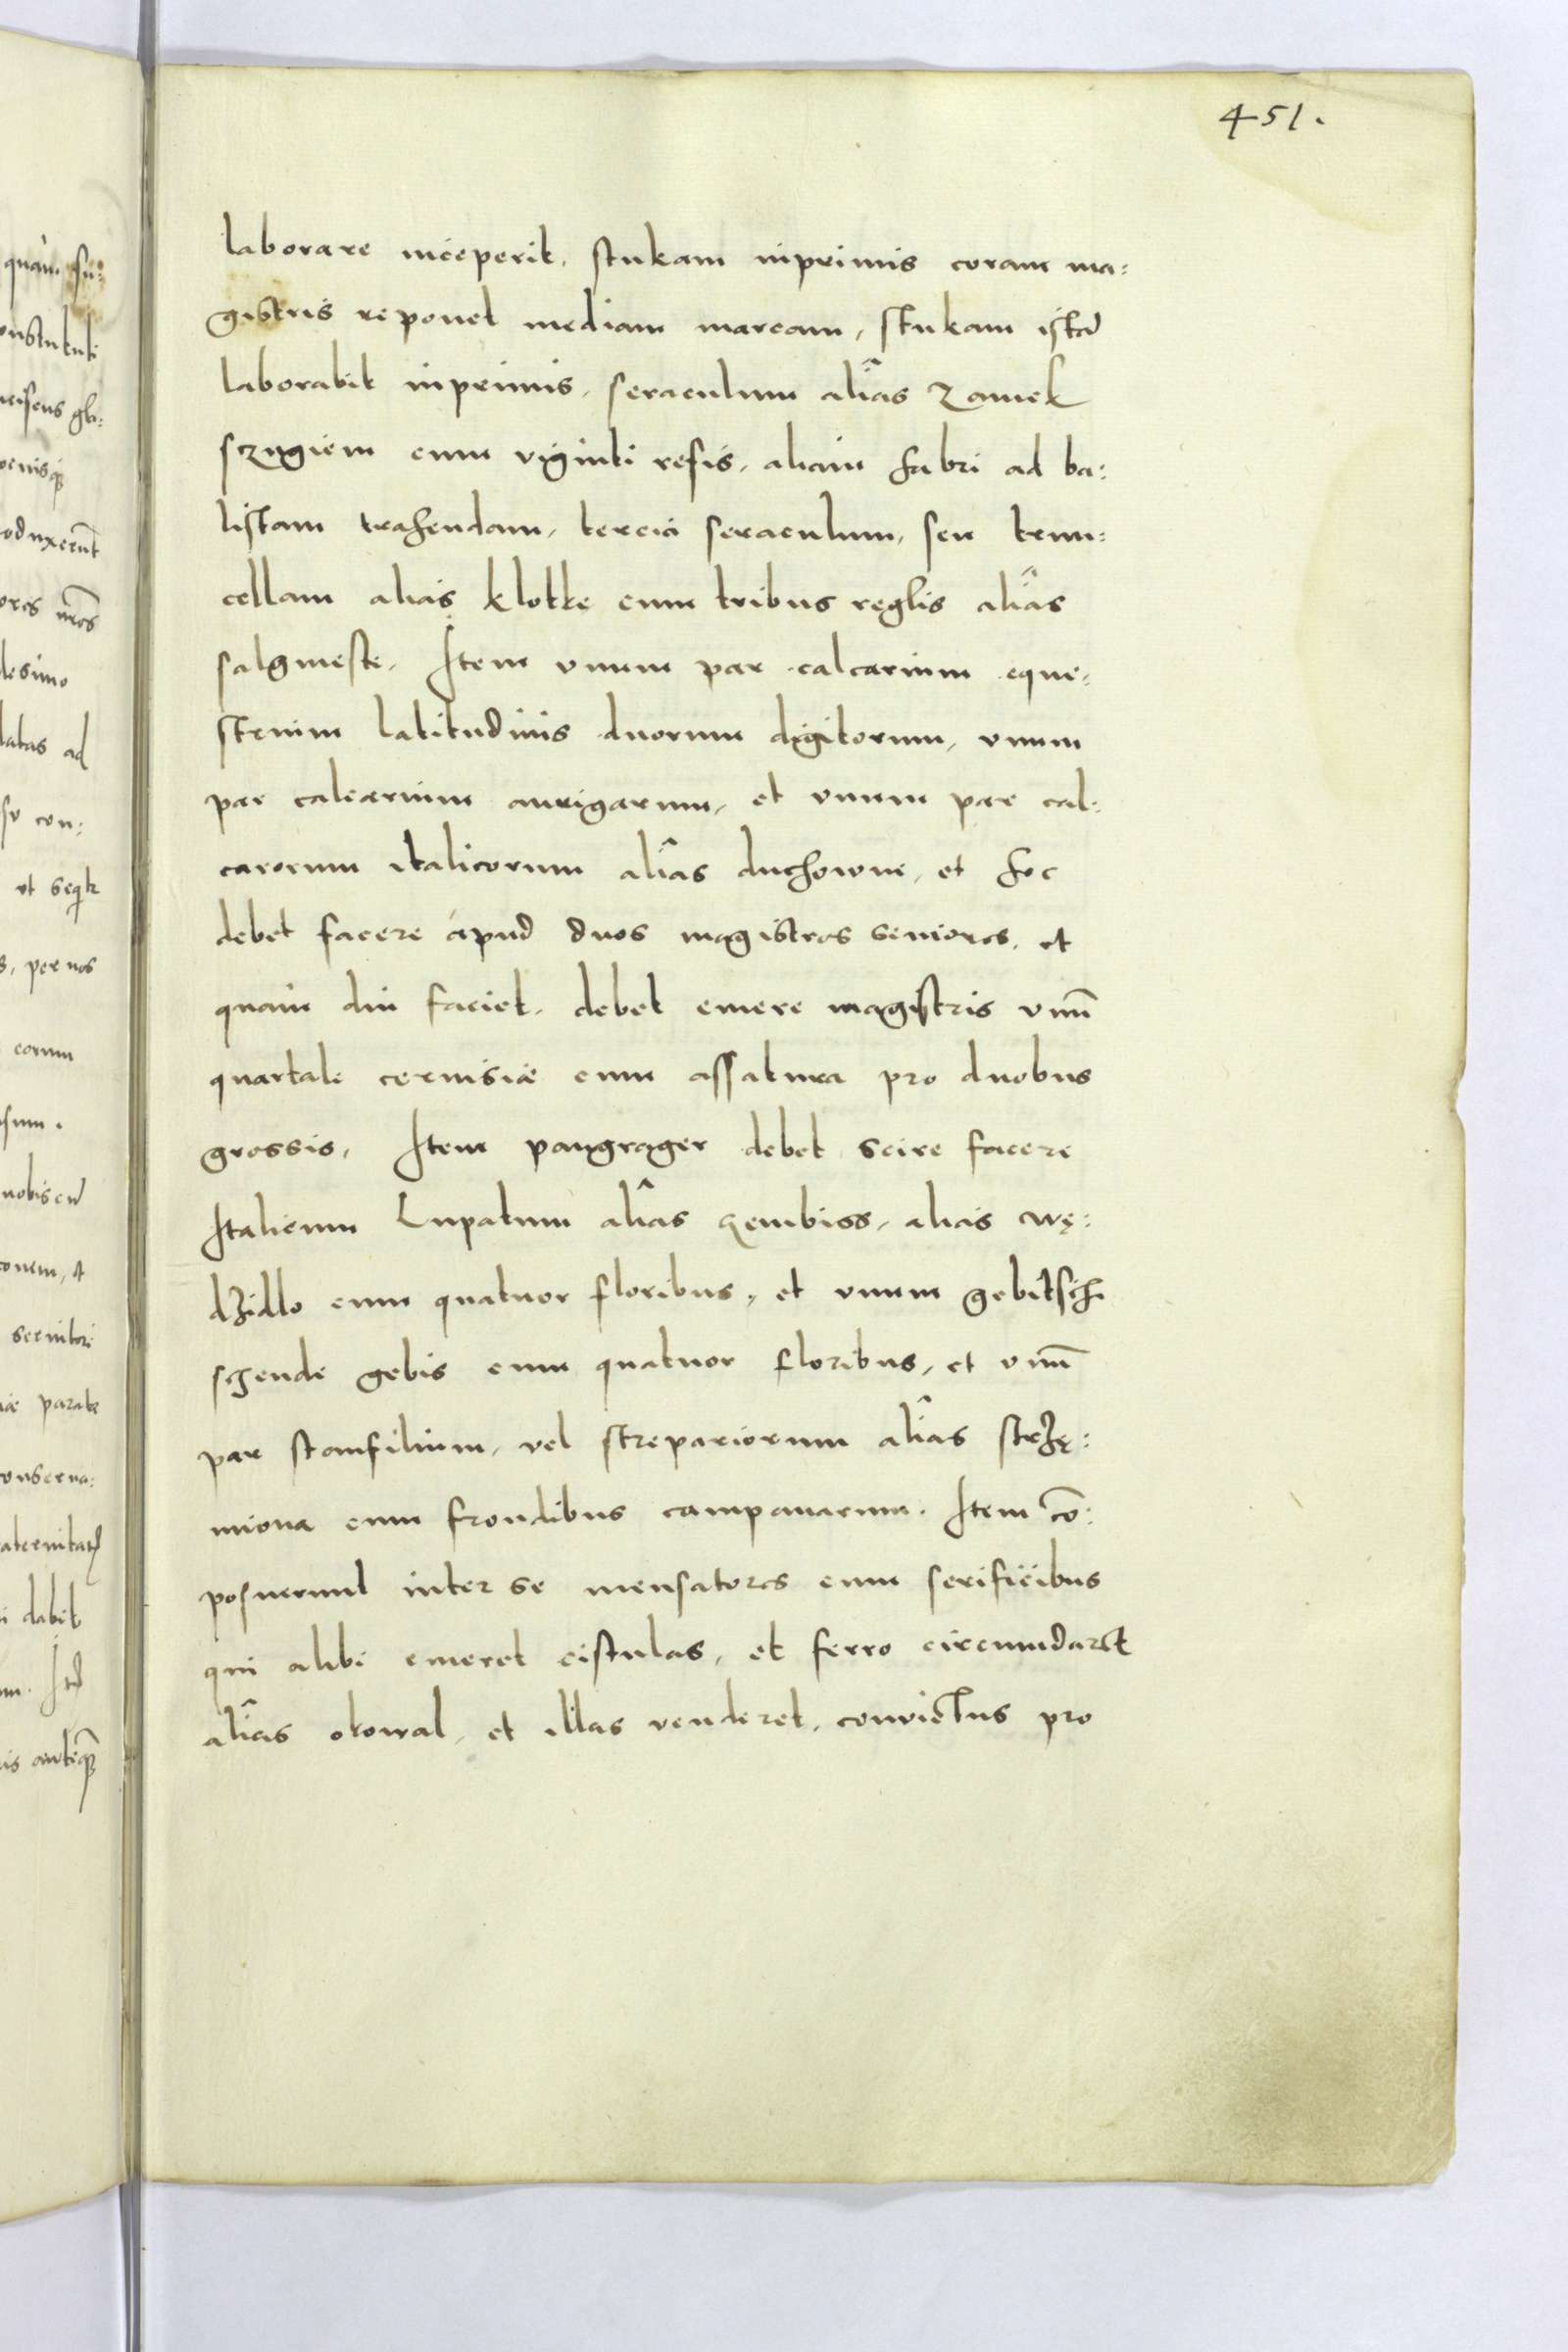 451.
laborare inceperit, stukam inprimis coram ma:
gistris reponet mediam marcam, stukam istā
laborabit inprimis, seraculum aliâs zamek
szugiem cum viginti resis, aliam fabri ad ba:
listam trahendam, terciā seraculum, seu trun:
cellam alias klotke cum tribus reglis aliâs
salgmeste. Item vnum par calcarium eque:
strium latitudinis duorum digitorum, vnum
par calcarium aurigarum, et vnum par cal:
carorum italicorum aliâs duchowne, et hoc
debet facere apud duos magistros seniores, et
quàm diu faciet, debet emere magistris vnū
quartale ceruisiæ cum assatura pro duobus
grossis. Item pangrager debet scire facere
Italicum Lupatum aliâs gembiss, alias wę:
dzidlo cum quatuor floribus, et vnum gebitschi
schende gebis cum quatuor floribus, et vnū
par stanfilium, vel strepariorum aliâs strzę:
miona cum frondibus campanarum. Item cō:
posuerunt inter se mensatores cum serificibus
qui alibi emeret cistulas, et ferro circumdaret
aliâs okowal, et illas venderet, convictus pro
quàm su:
onstituti
ad
per nos
eorum
nobiscū
dabit